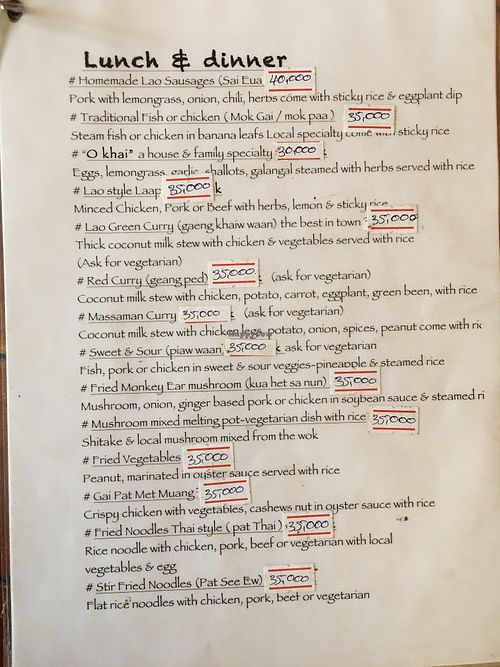 Lunch & dinner
# Homemade Lao Sausages (Sai Eua 40,000
Pork with lemongrass, onion, chili, herbs come with sticky rice & eggplant dip
# Traditional Fish or chicken ( Mok Gai / mok paa ) 35,000
Steam fish or chicken in banana leafs Local specialty come with sticky rice
# "O khai" a house & family specialty 30,000
Eggs, lemongrass, garlic, shallots, galangal steamed with herbs served with rice
# Lao style Laap 35,000 k
Minced Chicken, Pork or Beef with herbs, lemon & sticky rice
# Lao Green Curry (gaeng khaiw waan) the best in town 35,000
Thick coconut milk stew with chicken & vegetables served with rice
(Ask for vegetarian)
# Red Curry (geang ped) 35,000 (ask for vegetarian)
Coconut milk stew with chicken, potato, carrot, eggplant, green been, with rice
# Massaman Curry 35,000 (ask for vegetarian)
Coconut milk stew with chicken legs, potato, onion, spices, peanut come with ric
# Sweet & Sour (piaw waan) 35,000 k ask for vegetarian
Fish, pork or chicken in sweet & sour veggies-pineapple & steamed rice
# Fried Monkey Ear mushroom (kua het sa nun) 35,000
Mushroom, onion, ginger based pork or chicken in soybean sauce & steamed ri
# Mushroom mixed melting pot-vegetarian dish with rice 35,000
Shitake & local mushroom mixed from the wok
# Fried Vegetables 35,000
Peanut, marinated in oyster sauce served with rice
# Gai Pat Met Muang 35,000
Crispy chicken with vegetables, cashews nut in oyster sauce with rice
# Fried Noodles Thai style ( pat Thai) 35,000
Rice noodle with chicken, pork, beef or vegetarian with local
vegetables & egg
# Stir Fried Noodles (Pat See Ew) 35,000
Flat rice noodles with chicken, pork, beef or vegetarian